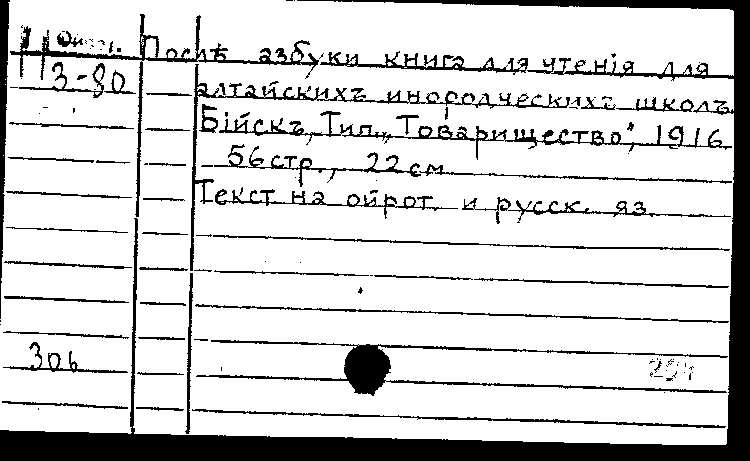 Ойрот.
3-80
Послѣ азбуки книга для чтенія для
алтайскихъ инородческихъ школъ.
Бійскъ, Тип. „Товарищество", 1916
56 стр., 22 см
Текст на ойрот. и русск. яз.
306